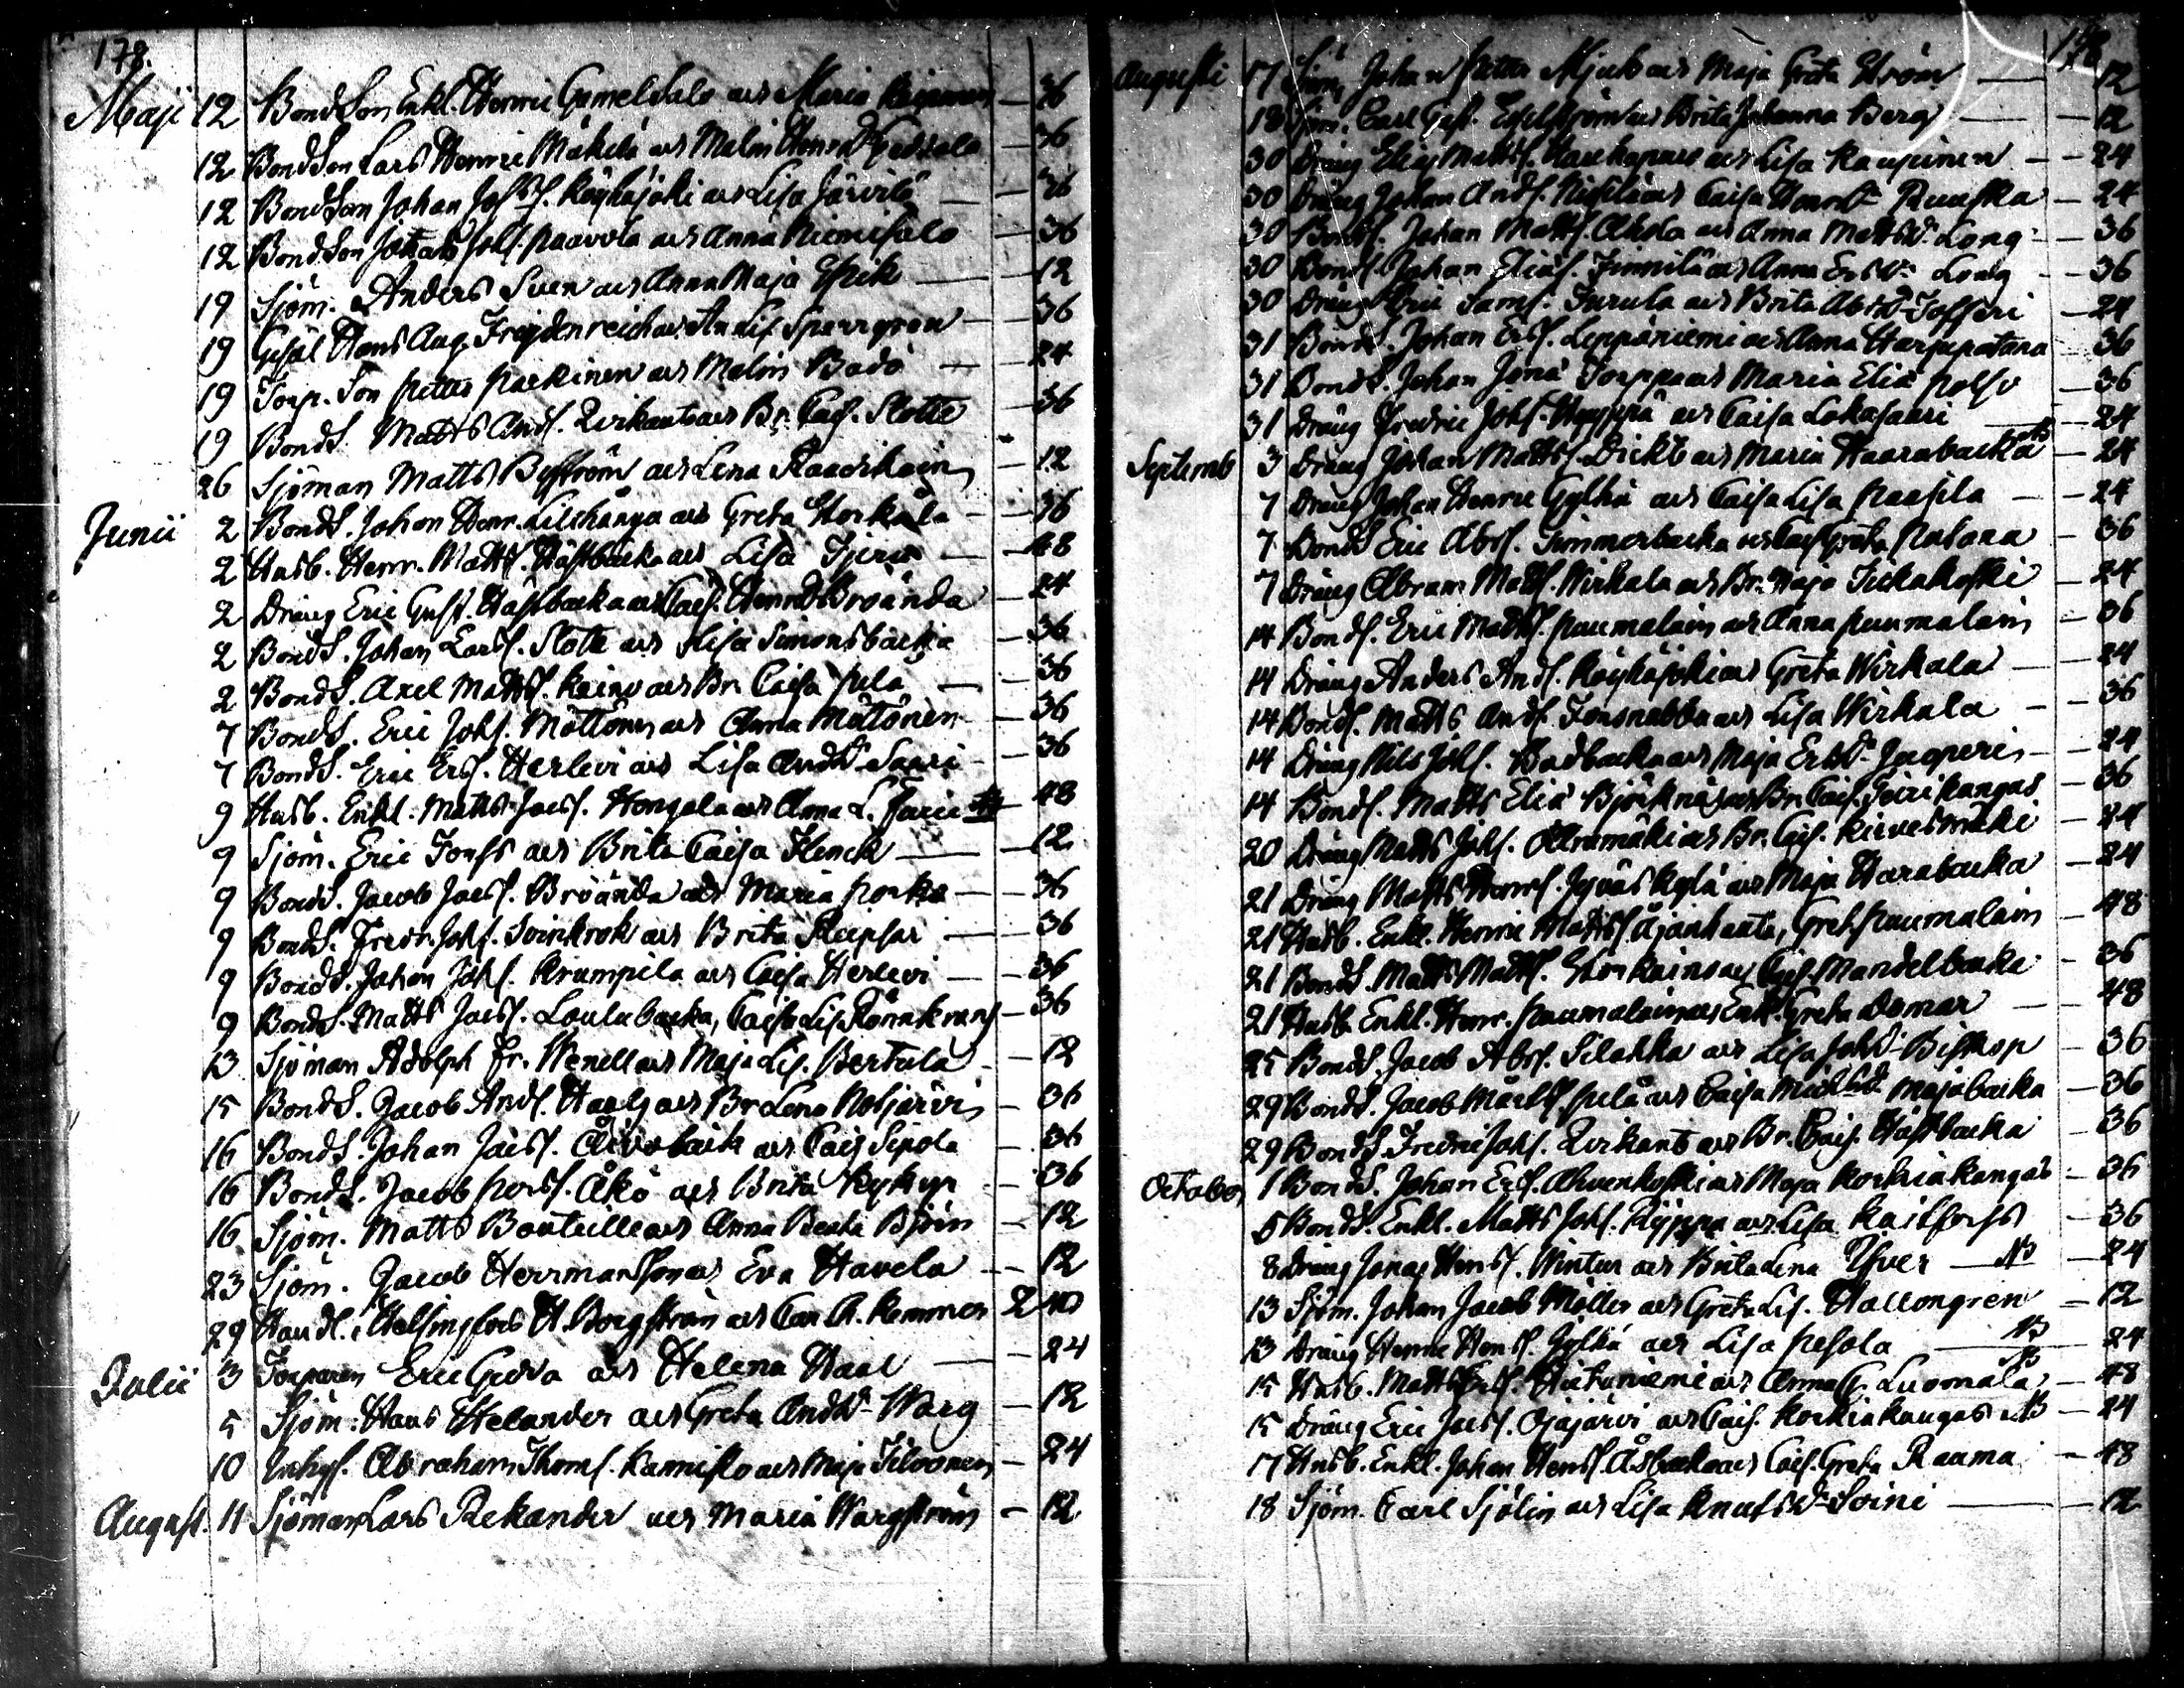 178.
Maji 12 BondSon Enkl. Henric Gamelsalo och Maria 36
12 BondSon Lars Henric Mäkelä och Malin Henr.D. 36
12 BondSon Johan Johss. Köyhäjoki och Lisa Järvilä 36
12 BondSon Johan Johs. Paavola och Anna Niemisalo 36
19 Sjöm. Anders Sven och Anna Maja Spik 12
19 Gesäl Hans Aug. Freijdenreich och An. Lis. Sparrgren 36
19 Torp. Son Petter Parkinen och Malin Bodö 24
19 BondS. Matts Ands. Qvikant och Br. Cajs. Slotte 36
26 Sjöman Matts Byström och Lena Raudskoin 12
Junii 2 BondS. Johan Henr. Lillhånga och Greta Storkåla 36
2 Husb. Henr. Matts. Hästbacka och Lisa Tjeru 48
2 Dräng Eric Gust. Hästbacka och Cajs. Henr.D. Broända 24
2 BondS. Johan Larss. Slote och Lisa Simonsbacka 36
2 BondS. Axel Matts. Kaino och Br. Caisa Pela 36
7 BondS. Eric Johs. Möttönen och Anna Möttönen 36
7 BondS. Eric Ers. Herlevi och Lisa And.D. Saari 36
9 Husb. Enkl. Matts Jacs. Hongala och Anna L. 48
9 Sjöm. Eric Forss och Brita Caisa Flinck 12
9 BondS. Jacob Jacs. Broända och Maria Porko 36
9 BondS. Fredr. Johs. Soinkrok och Brita Ruipsar 36
9 BondS. Johan Johs. Krumpila och Caisa Herlevi 36
9 BondS. Matts Jacs. Loulubacka, Caisa Lis. Rånakrans 36
13 Sjöman Adolph Fr. Wenell och Maja Lis. Bertula 12
15 BondS. Jacob Ands. Haulg och Br. Lena Noljärvi 36
16 BondS. Johan Jacs. Åivobacka och Cajs Sipola 36
16 BondS. Jacob Perss. Åkö och Brita Kykyr 36
16 Sjöm. Matts Bouteille och Anna Beata Björn 12
23 Sjöm. Jacob Herrmansson och Eva Havela 12
29 Handl. i Helsingfors H. Borgström och Car. A. Kemmer 2 40
Julii 3 Torparen Eric Gerva och Helena Haal 24
5 Sjöm. Hans Helander och Greta And.D. Warg 12
10 Inhys. Abraham Thoms. Kannisto och Maja Tilvonen 24
August. 11 Sjöman Lars Rekander och Maria Wargström 12
Augusti 17 Sjöm. Johan Petter Mjuk och Maja Greta Ström 12
18 Sjöm. Carl Gust. Engelström och Brita Johanna Berg 12
30 Dräng Elias Matts. Haukapuro och Lisa Kaupinen 24
30 Dräng Johan Ands. Niskala och Caisa Henr.D. Ruuska 24
30 BondS. Johan Matts. Ahola och Anna Matts D. Lång 36
30 BondS. Johan Elias. Finnilä och Anna Ers D. Lång 36
30 Dräng Eric Sams. Furula och Brita Abr.D. Tofferi 24
31 BondS. Johan Ers. Leppäniemi och Anna Harjupatana 36
31 BondS. Johan Jonä Torppa och Maria Eliä Polso 36
31 Dräng Fredric Johs. Hyyppä och Caisa Lokasaari 24
Septemb. 3 Dräng Johan Matts. Dickt och Maria Haarabacka NB 24
7 Dräng Johan Henric Gylkä och Caisa Lisa Paasila 24
7 BondS. Eric Abrs. Timmerbacka och Cajs. Greta Patana 36
7 Dräng Abram Matts. Wirkala och Br. Maja Tiikakoski 24
14 BondS. Eric Matts. Puumalain och Anna Puumalain 36
14 Dräng Anders Ands. Köyhäjoki och Greta Wirkala 24
14 BondS. Matts Ands. Forsnabba och Lisa Wirkala 36
14 Dräng Nils Johs. Badbacka och Maja Ers D. Jacoperi 24
14 BondS. Matts Eliä Björknäs och Br. Cais. Toirikangas 36
20 Dräng Matts Johs. Åkramäki och Br. Cajs. Kirvesmäki 24
21 Dräng Matts Henrs. Jyväskylä och Maja Harabacka 24
21 Husb. Enkl. Henric Matts. Äijänhanta, Gret. Puumalain 48
21 BondS. Matts Matts. Storkaino och Cajs. Mandelbacka 36
21 Husb. Enkl. Henr. Puumalainen och Enk. Greta Domar 48
25 BondS. Jacob Abrs. Silahka och Lisa Joh.D. Biskop 36
29 BondS. Jacob Mårts. Pelå och Caisa Mich.D. Majabacka 36
29 BondS. Fredric Johs. Qvikant och Br. Caj. Hästbacka 36
October 1 BondS. Johan Ers. Ahvenkoski och Maja Korkiakangas 36
5 BondS. Enkl. Matts Johs. Ryyppä och Lisa Kailfors 36
8 Dräng Jonas Hens. Winter och Brita Lena Ufver NB 24
13 Sjöm. Johan Jacob Möller och Greta Lis. Hallongren 12
13 Dräng Henric Hens. Jylkä och Lisa Pesola NB 24
15 Husb. Matts Ers. Hietaniemi och Anna G. Luomala NB 48
15 Dräng Eric Jacs. Ojajärvi och Cais. Korkiakangas NB 24
17 Husb. Enkl. Johan Hens. Åsbacka och Cais. Greta Raama 48
18 Sjöm. Carl Sjölin och Lisa Knuts D. Soini 12